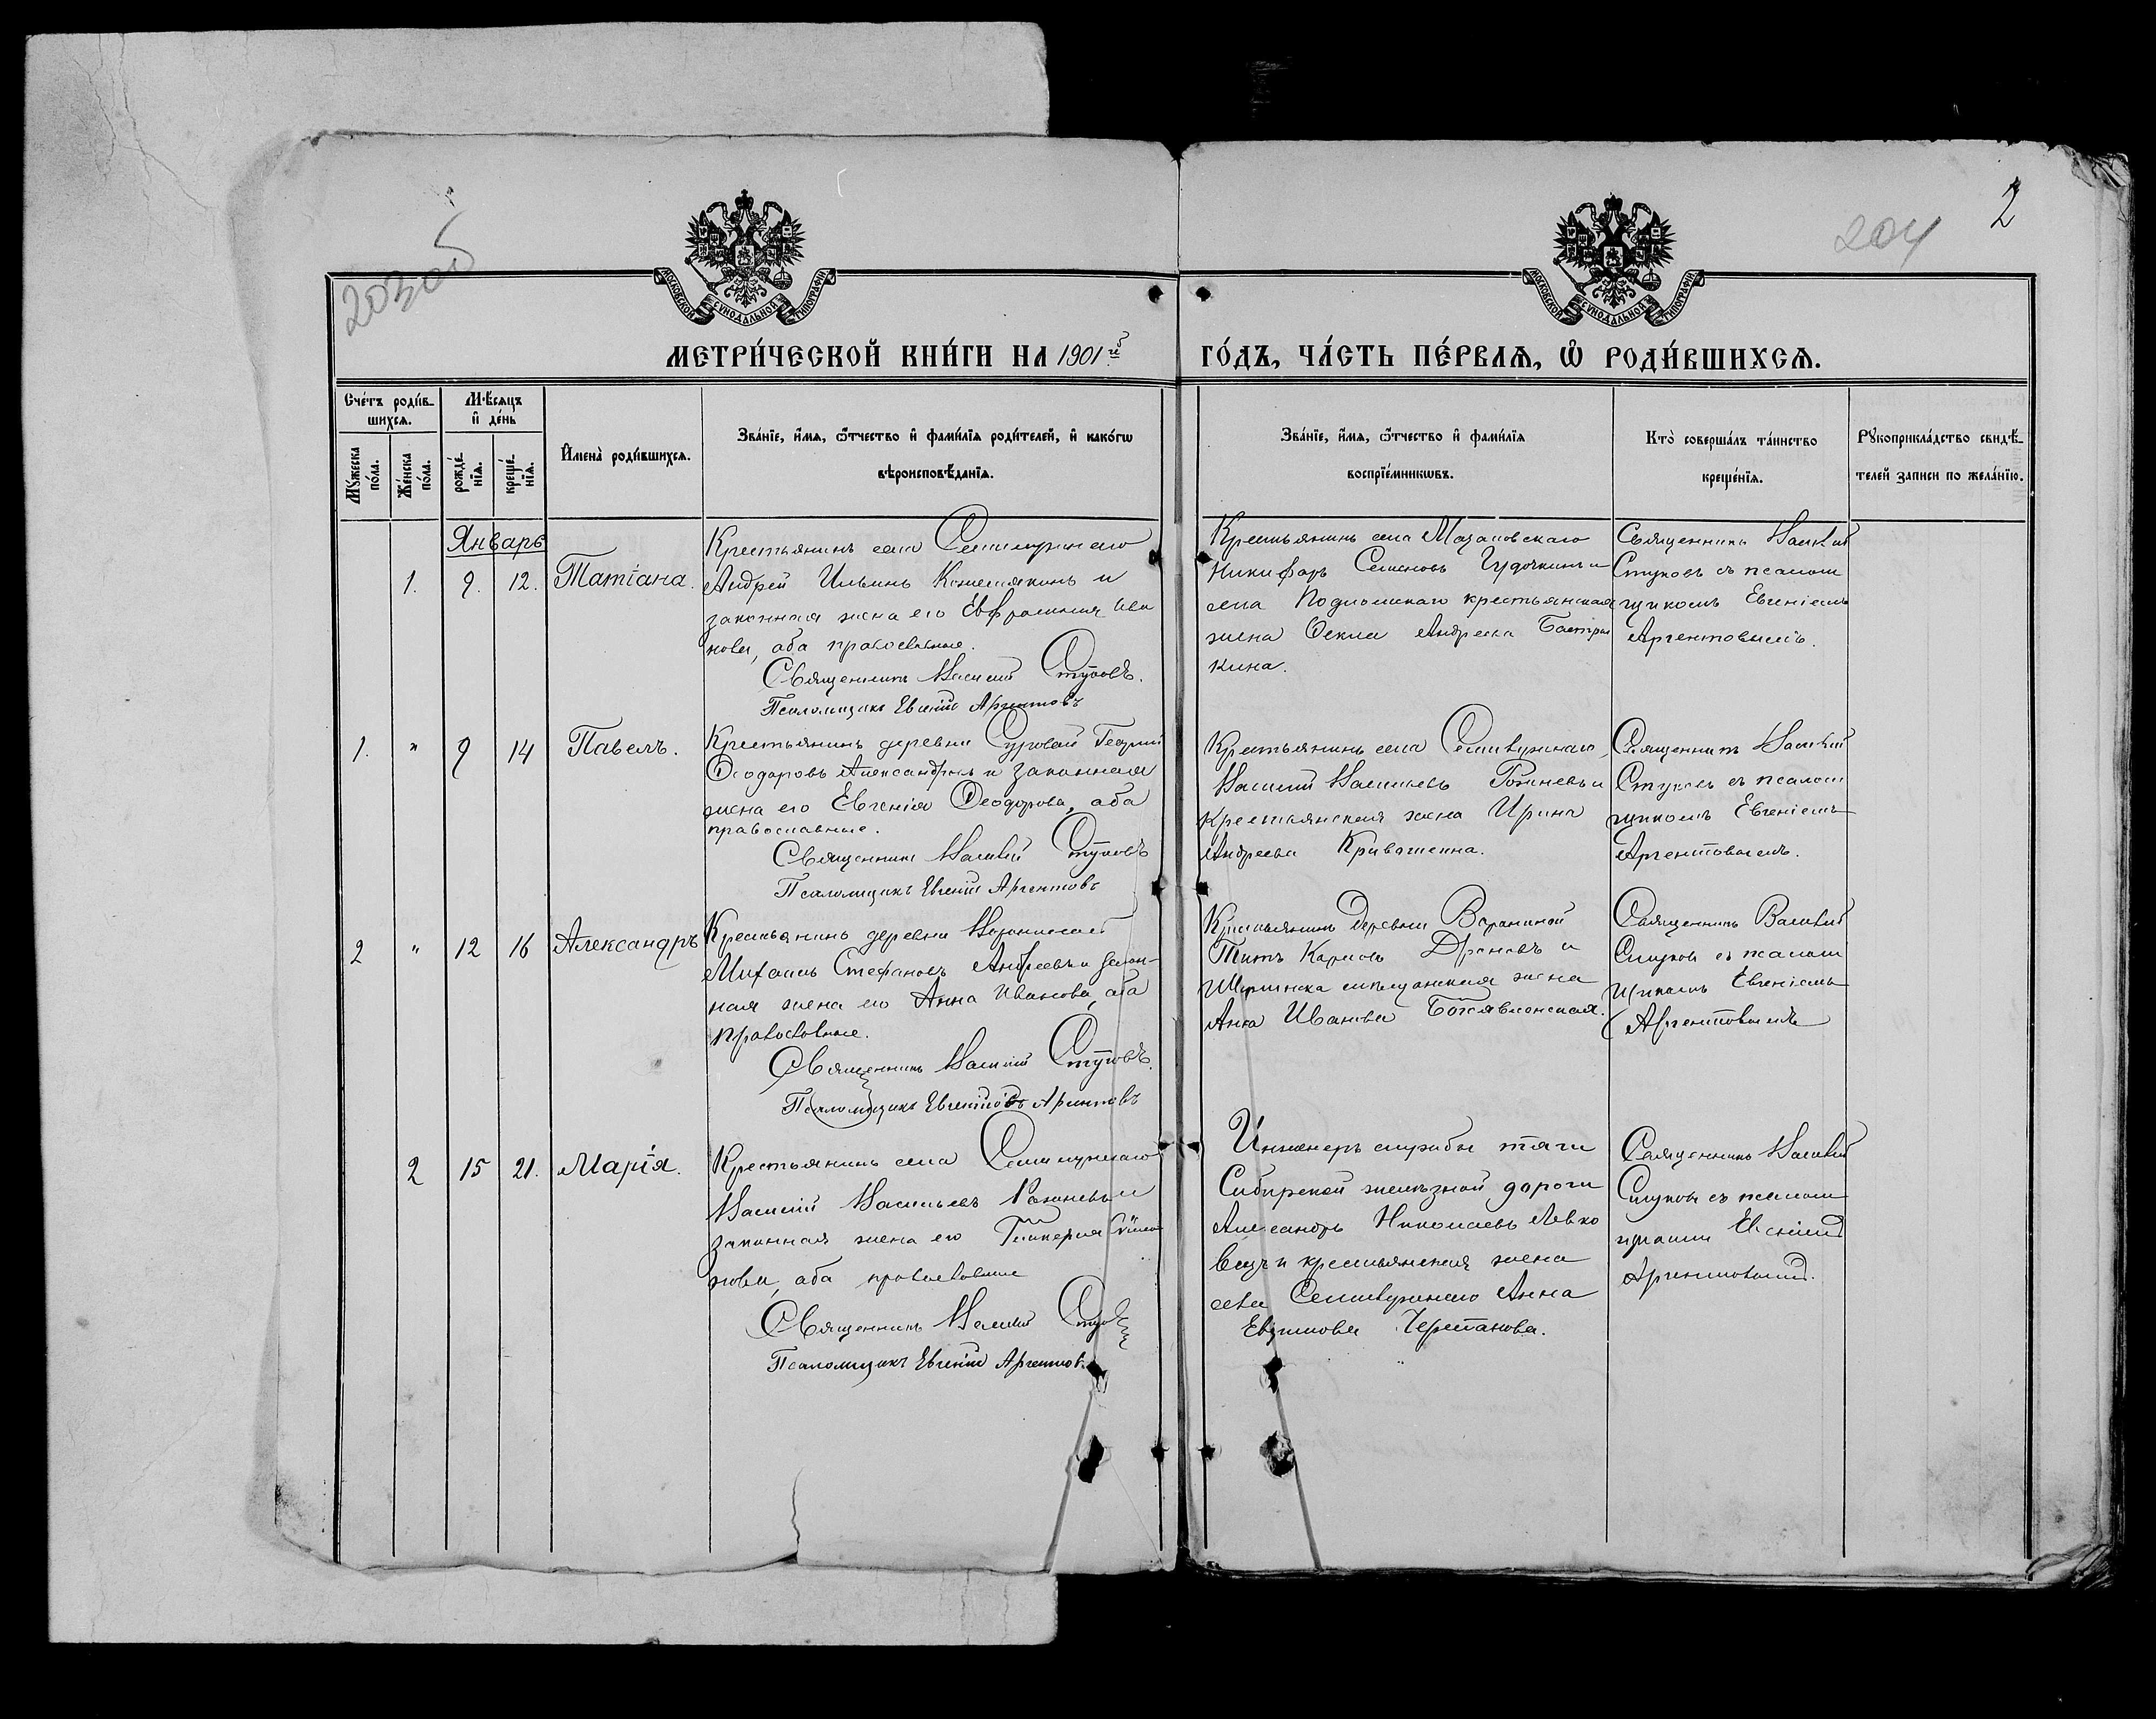 2
204
203об
МОСКОВСКОЙ СУНОДАЛЬНОЙ ТИПОГРАФІИ
МОСКОВСКОЙ СУНОДАЛЬНОЙ ТИПОГРАФІИ
МЕТРИ́ЧЕСКОЙ КНИ́ГИ НА 1901 й
ГО́ДЪ, ЧА́СТЬ ПЕ́РВАѦ, Ѡ РОДИ́ВШИХСѦ.
Сче́тъ роди́в-
шихсѧ.
Мꙋ́жеска по́ла.
Же́нска по́ла.
Мѣ́сѧцъ
и де́нь
рожде́-
нїѧ.
креще́-
нїѧ.
Имена̀ роди́вшихсѧ.
Зва́нїе, и́мѧ, ѻ́тчество и фами́лїѧ роди́телей, и како́гѡ
вѣроисповѣ́данїѧ.
Зва́нїе, и́мѧ, ѻ́тчество и фами́лїѧ
воспрїе́мникѡвъ.
Кто̀ соверша́лъ та́инство
креще́нїѧ.
Рꙋкоприкла́дство свидѣ́-
телей записи по жела́нїю.
Январь
1. 9. 12. Татіана.
Крестьянинъ села
Андрей Ильинъ и
законная жена его Евфросинія Ива
нова, оба православные.
Священникъ Василій Стуковъ.
Псаломщикъ Евгеній Аргентовъ
Крестьянинъ села Мазановскаго
Никифоръ Семеновъ Чудочкинъ и
села крестьянская
жена Ѳекла Андреева Бастры
кина.
Священникъ Василій
Стуковъ съ псалом
щикомъ Евгеніемъ
Аргентовымъ.
1. " 9 14 Павелъ.
Крестьянинъ деревни Суровой Георгій
Ѳеодоровъ Александровъ и законная
жена его Евгенія Ѳеодорова, оба
православные.
Священникъ Василій Стуковъ
Псаломщикъ Евгеній Аргентовъ
Крестьянинъ села
Василій Васильевъ и
крестьянская жена Ирина
Андреева Кривошеина.
Священникъ Василій
Стуковъ съ псалом
щикомъ Евгеніемъ
Аргентовымъ.
2 " 12 16 Александръ
Крестьянинъ деревни
Михаилъ Стефановъ Андреевъ и закон-
ная жена его Анна Иванова, оба
православные.
Священникъ Василій Стуковъ.
Псаломщикъ Евгеній Аргентовъ
Крестьянинъ деревни Ворониной
Титъ Карповъ Дроновъ и
мѣщанская жена
Анна Иванова Богоявленская.
Священникъ Василій
Стуковъ съ псалом
щикомъ Евгеніемъ
Аргентовымъ
2 15 21. Марія.
Крестьянинъ села
Василій Васильевъ и
законная жена его Гликерія
нова, оба православные
Священникъ Василій Стуковъ
Псаломщикъ Евгеній Аргентовъ
Инженеръ службы тяги
Сибирской желѣзной дороги
Александръ Николаевъ Левко
вецъ и крестьянская жена
села Анна
Евдимова Черепанова.
Священникъ Василій
Стуковъ съ псалом
щикомъ Евгеніемъ
Аргентовымъ.